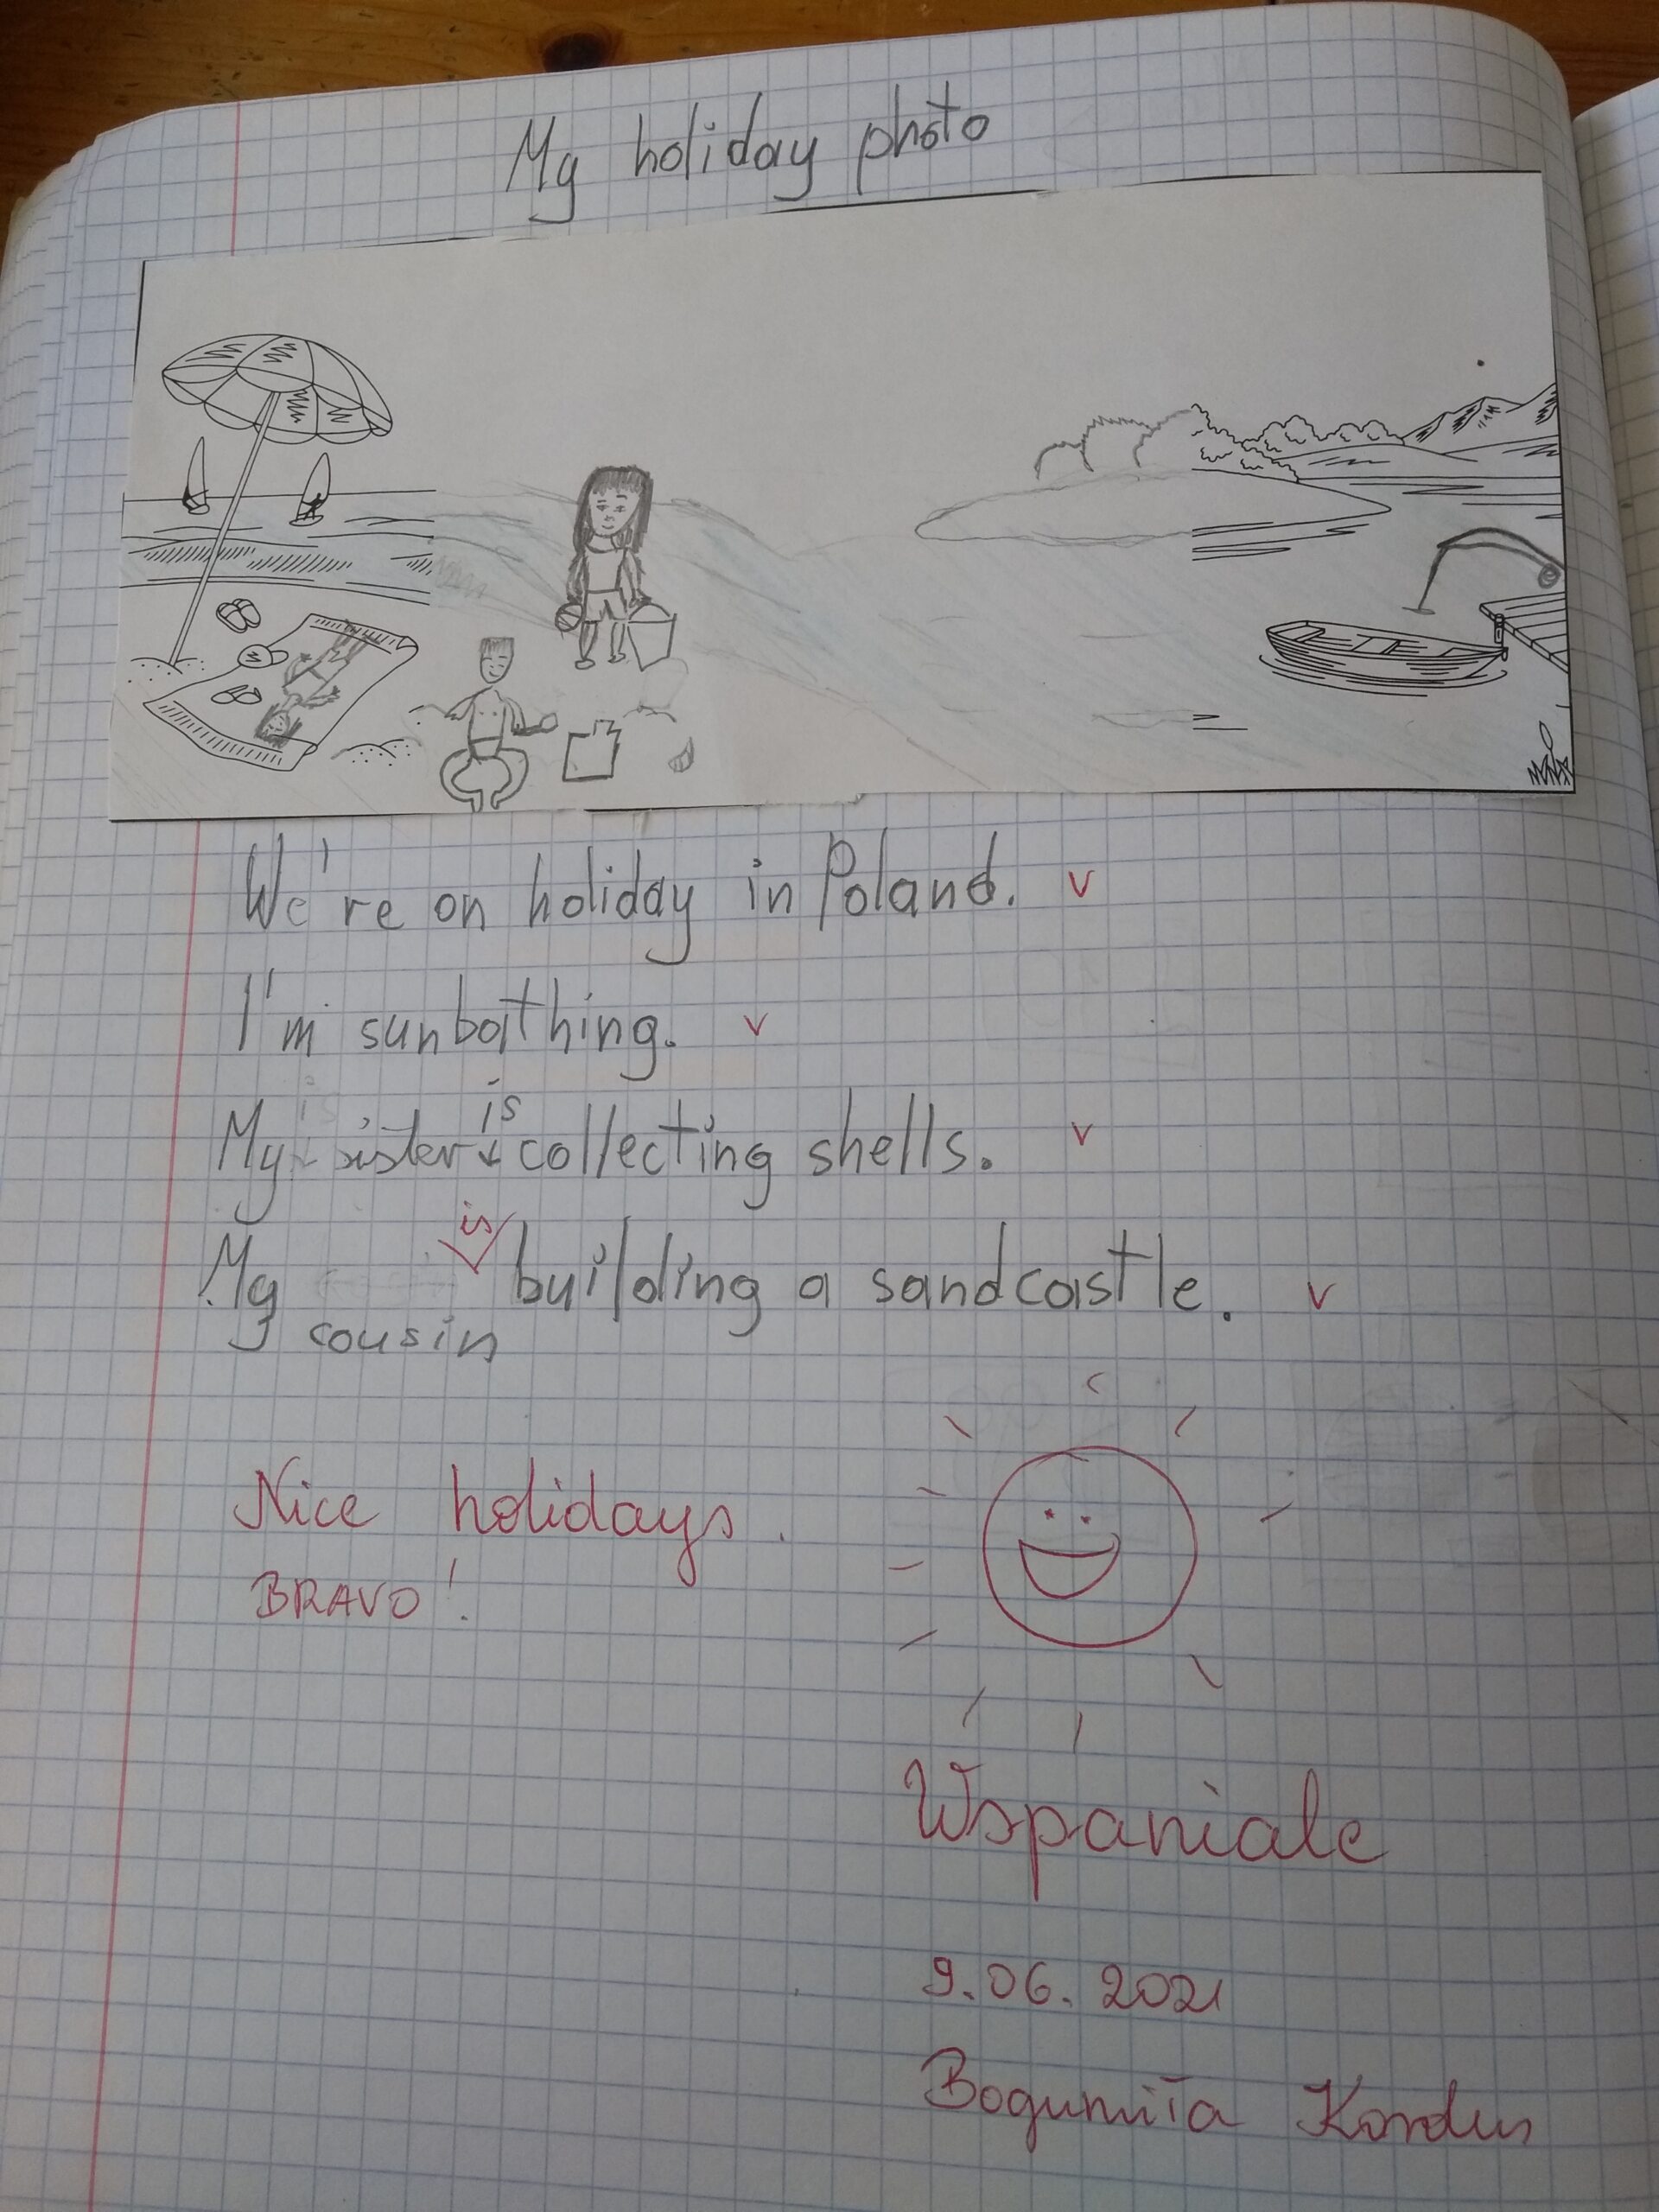 My holiday photo
We're on holiday in Poland. v
I'm sunbathing. v
is
My sister collecting shells. v
is
My building a sandcastle. v
cousin
Nice holidays.
BRAVO!
Wspaniale
9.06.2021
Bogumiła Kordus